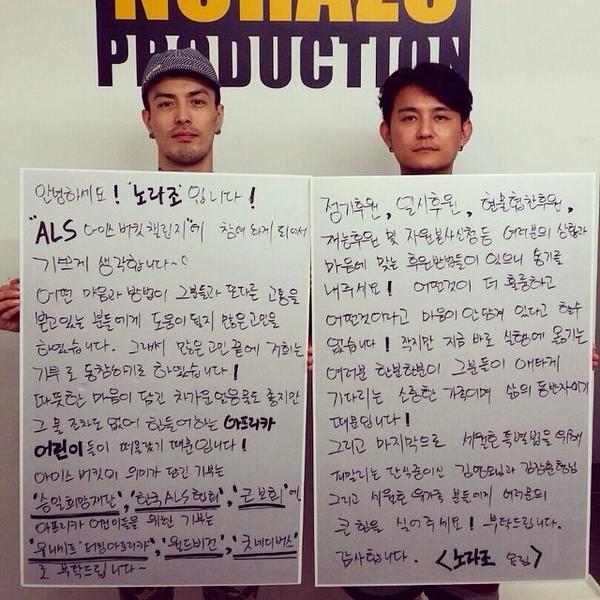 NORAZO
PRODUCTION
안녕하세요! '노라조' 입니다!
"ALS 아이스 버킷 챌린지"에 참여하게 되어서
기쁘게 생각합니다~
어떤 마음과 방법이 그분들과 또다른 고통을
받고있는 분들에게 도움이 될지 많은고민을
하였습니다. 그래서 많은 고민 끝에 저희는
기부로 동참하기로 하였습니다!
따뜻한 마음이 담긴 차가운 얼음물도 좋지만
그 물 조차도 없어 힘들어하는 아프리카
어린이들이 떠올랐기 때문입니다!
아이스 버킷의 의미가 담긴 기부는
'승일희망재단', '한국ALS협회', '큰 보회'에
아프리카 어린이들을 위한 기부는
'유니세프' 아프리카', '월드비전', '굿네이버스'
로 부탁드립니다~
정기후원, 일시후원, 현물협찬후원,
재능후원 및 자원봉사신청등 여러분의 상황과
마음에 맞는 후원방법들이 있으니 용기를
내주세요! 어떤것이 더 훌륭하고
어떤것이라고 마음이 안담겨 있다고 할수
없습니다! 작지만 지금 바로 실행에 옮기는
여러분 한분한분이 그분들이 애타게
기다리는 소중한 가족이며 삶의 동반자이기
때문입니다!
그리고 마지막으로 세월호 특별법을 위해
단식중이신 김영오님과 김장훈형님
그리고 세월호 유가족 분들에게 여러분의
큰 힘을 실어주세요! 부탁드립니다.
감사합니다. <노라조 올림>